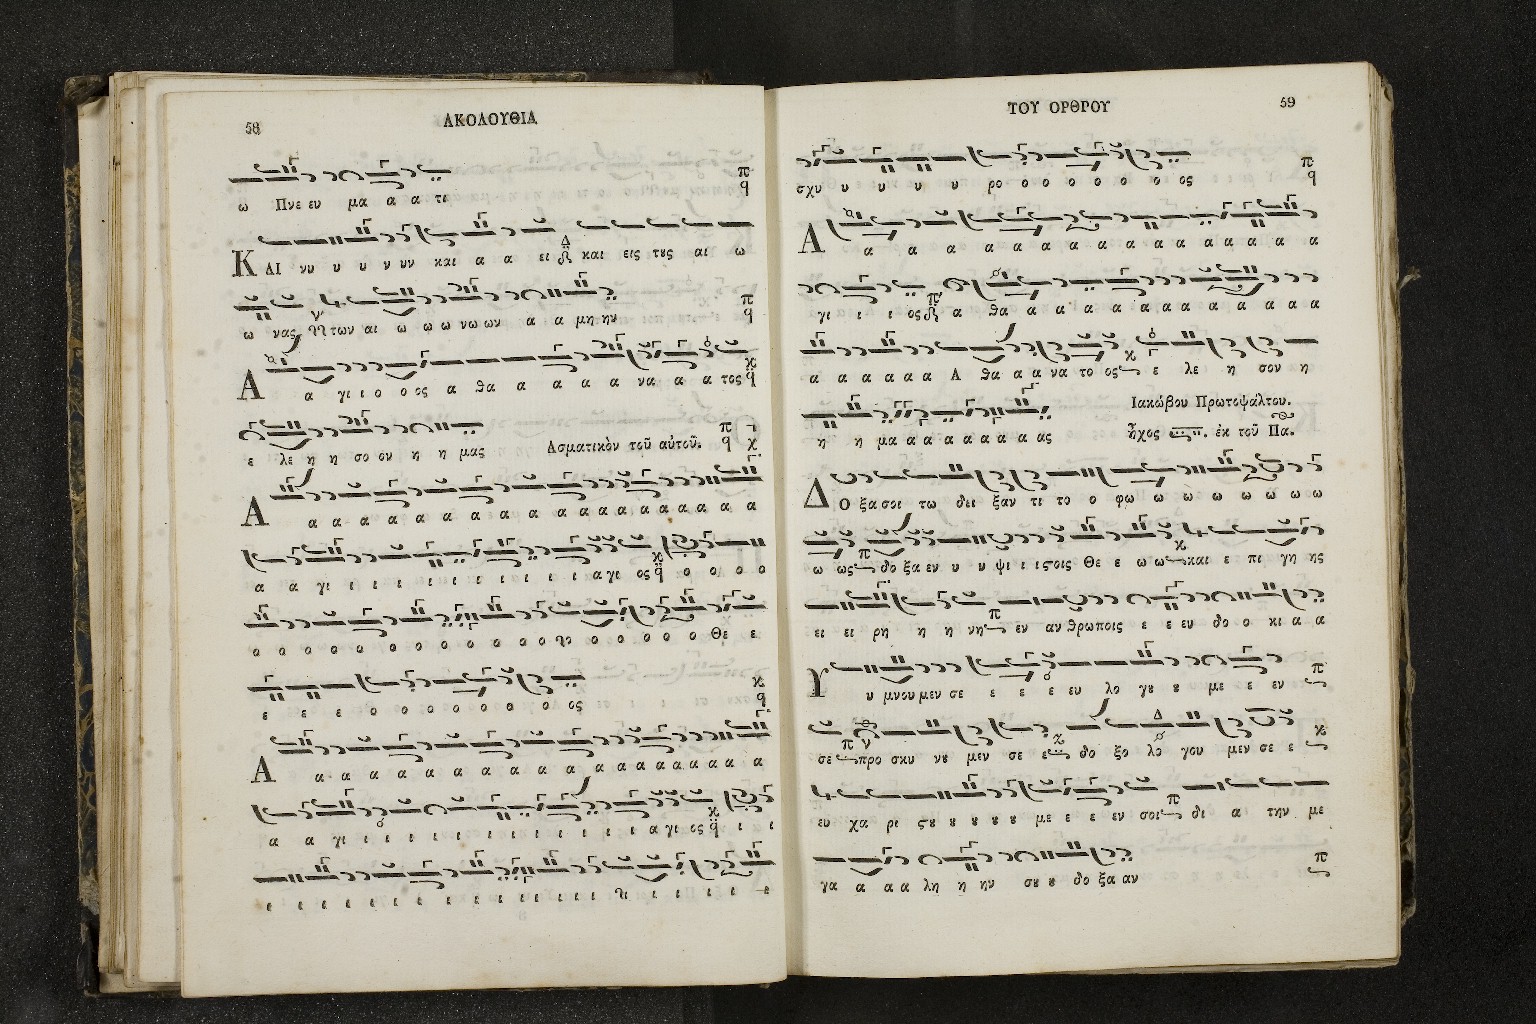 58 ΑΚΟΛΟΥΘΙΑ
ω Πνε ευ μα α α τι
ΚΑΙ νυ υ υ υ ν υν και α α ει και εις τȣς αι ω
ω νας των αι ω ω ω νω ων α α μη ην
Α α γι ι ο ο ος α θα α α α α να α α τος
ε λε η η σο ον η η μας Ασματικὸν τοῦ αὐτοῦ.
Α α α α α α α α α α α α α α α α α α α
α α γι ι ι ι ι ι ι ι ι ι ι α γι ος ο ο ο ο
ο ο ο ο ο ο ο ο ο ο ο ο ο ο ο ο ο ο Θε ε
ε ε ε ο ο ο ο ο ο ο ο ο ος
Α α α α α α α α α α α α α α α α α α α
α α γι ι ι ι ι ι ι ι ι ι ι ι ι α γι ος ι ι
ι ι ι ι ι ι ι ι ι ι ι ι ι ι ι ι ι ι ι
ΤΟΥ ΟΡΘΡΟΥ 59
σχυ υ υ υ υ ρο ο ο ο ο ο ο ος
Α α α α α α α α α α α α α α α α α
γι ι ι ος α θα α α α α α α α α α α α α
α α α α α α Α θα α α να το ος ε λε η σον η
Ιακώβου Πρωτοψάλτου.
η η μα α α α α α α α ας ἦχος ἐκ τοῦ Πα.
ΔΟ ξα σοι τω δει ξαν τι το ο φω ω ω ω ω ω ω
ω ως δο ξα εν υ υ ψι ι ι ϛοις Θε ε ω ω και ε πι γη ης
ει ει ρη η η νη εν αν θρωποις ε ε ευ δο ο κι α α
Υ υ μνου μεν σε ε ε ε ευ λο γȣ ȣ με ε εν
σε προ σκυ νȣ μεν σε ε δο ξο λο γου μεν σε ε
ευ χα ρι ϛȣ ȣ ȣ ȣ ȣ με ε ε εν σοι δι α την με
γα α α α λη η ην σȣ ȣ δο ξα αν